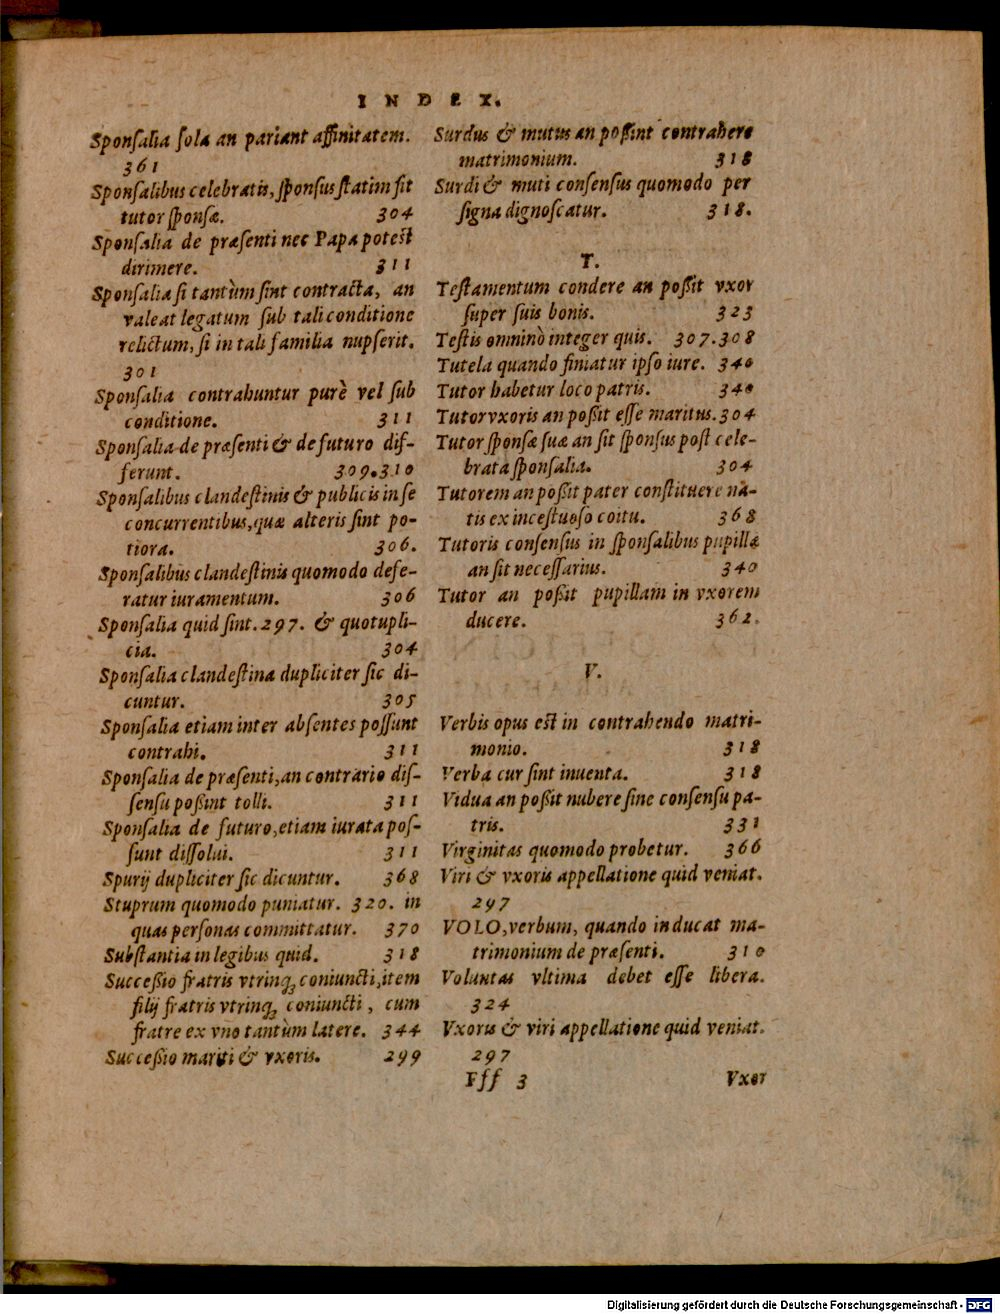 INDEX.
Sponsalia sola an pariant affinitatem.
361
Sponsalibus celebratis, sponsus statim sit
tutor sponsæ. 304
Sponsalia de præsenti nec Papa potest
dirimere. 311
Sponsalia si tantùm sint contracta, an
valeat legatum sub tali conditione
relictum, si in tali familia nupserit.
301
Sponsalia contrahuntur purè vel sub
conditione. 311
Sponsalia de præsenti & de futuro dif-
ferunt. 309.310
Sponsalibus clandestinis & publicis in se
concurrentibus, quæ alteris sint po-
tiora. 306.
Sponsalibus clandestinis quomodo defe-
ratur iuramentum. 306
Sponsalia quid sint. 297. & quotupli-
cia. 304
Sponsalia clandestina dupliciter sic di-
cuntur. 305
Sponsalia etiam inter absentes possunt
contrahi. 311
Sponsalia de præsenti, an contrario dis-
sensu poßint tolli. 311
Sponsalia de futuro, etiam iurata pos-
sunt dissolui. 311
Spurij dupliciter sic dicuntur. 368
Stuprum quomodo puniatur. 320. in
quas personas committatur. 370
Substantia in legibus quid. 318
Succeßio fratris vtrinq; coniuncti, item
filij fratris vtrinq; coniuncti, cum
fratre ex vno tantùm latere. 344
Succeßio mariti & vxoris. 299
Surdus & mutus an poßint contrahere
matrimonium. 318
Surdi & muti consensus quomodo per
signa dignoscatur. 318.
T.
Testamentum condere an poßit vxor
super suis bonis. 323
Testis omninò integer quis. 307.308
Tutela quando finiatur ipso iure. 340
Tutor habetur loco patris. 340
Tutor vxoris an poßit esse maritus. 304
Tutor sponsæ suæ an sit sponsus post cele-
brata sponsalia. 304
Tutorem an poßit pater constituere na-
tis ex incestuoso coitu. 368
Tutoris consensus in sponsalibus pupillæ
an sit necessarius. 340
Tutor an poßit pupillam in vxorem
ducere. 362.
V.
Verbis opus est in contrahendo matri-
monio. 318
Verba cur sint inuenta. 318
Vidua an poßit nubere sine consensu pa-
tris. 331
Virginitas quomodo probetur. 366
Viri & vxoris appellatione quid veniat.
297
VOLO, verbum, quando inducat ma-
trimonium de præsenti. 310
Voluntas vltima debet esse libera.
324
Vxoris & viri appellatione quid veniat.
297
Fff 3 Vxor
Digitalisierung gefördert durch die Deutsche Forschungsgemeinschaft - DFG